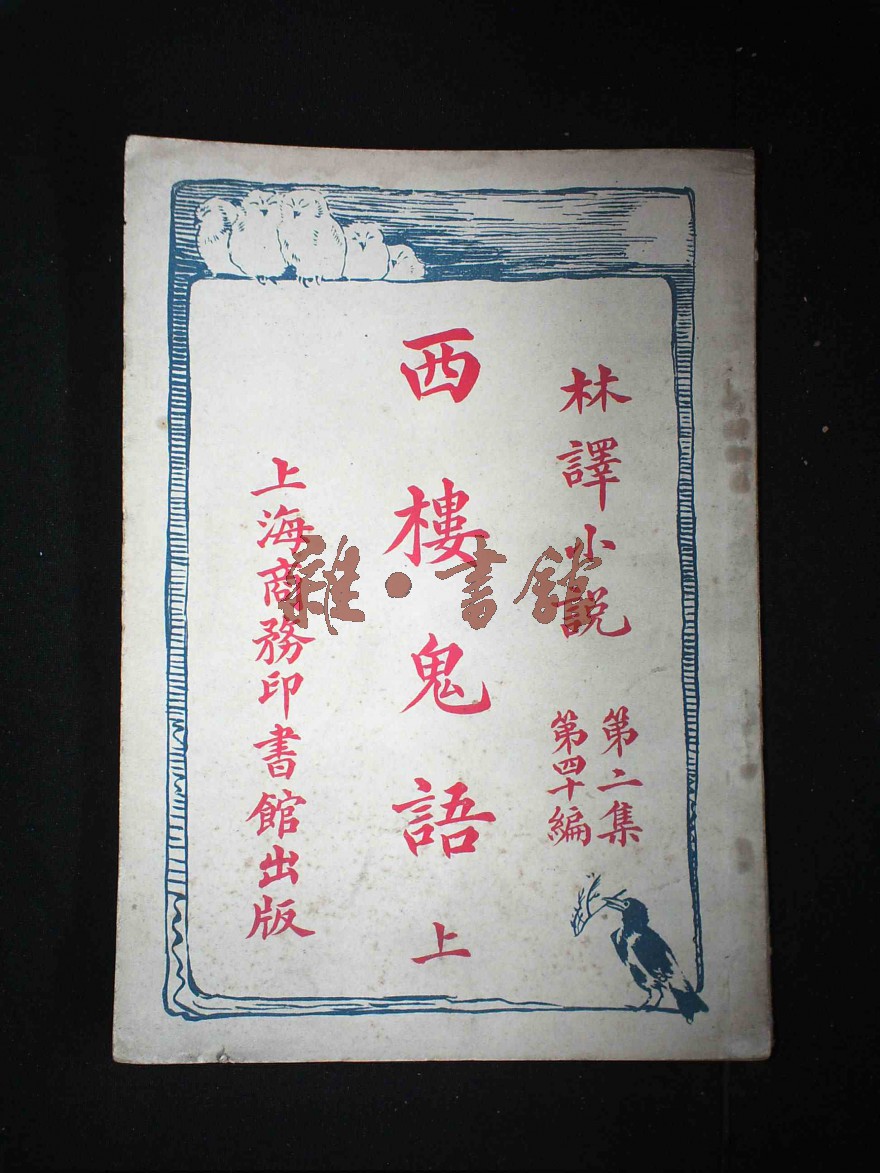 林譯小説
第二集
第四十編
西樓鬼語 上
上海商務印書館出版
雜·書館